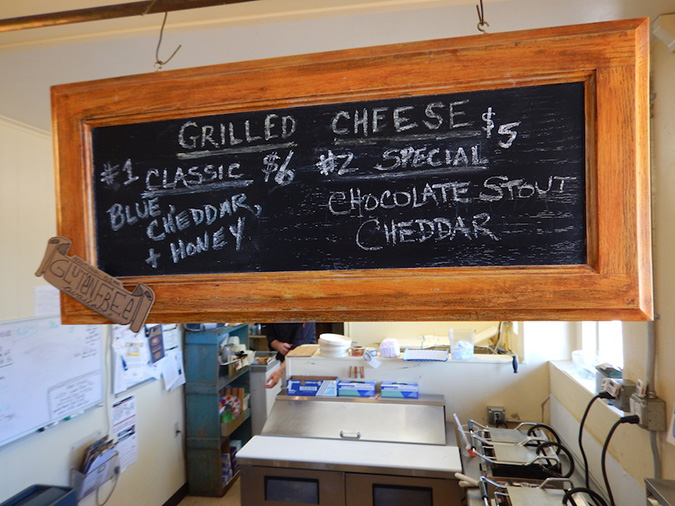 GRILLED CHEESE
#1 CLASSIC $6
BLUE CHEDDAR,
+ HONEY
#2 SPECIAL $5
CHOCOLATE STOUT
CHEDDAR